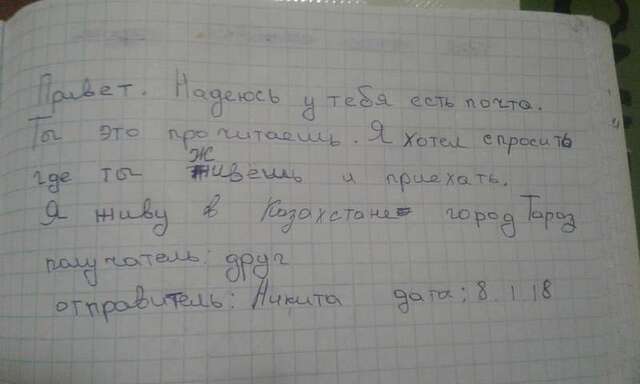 Привет. Надеюсь у тебя есть почта.
Ты это прочитаешь. Я хотел спросить
где ты живёшь и приехать.
Я живу в Казахстане город Тароз
получатель: друг
отправитель: Никита дата: 8.1.18